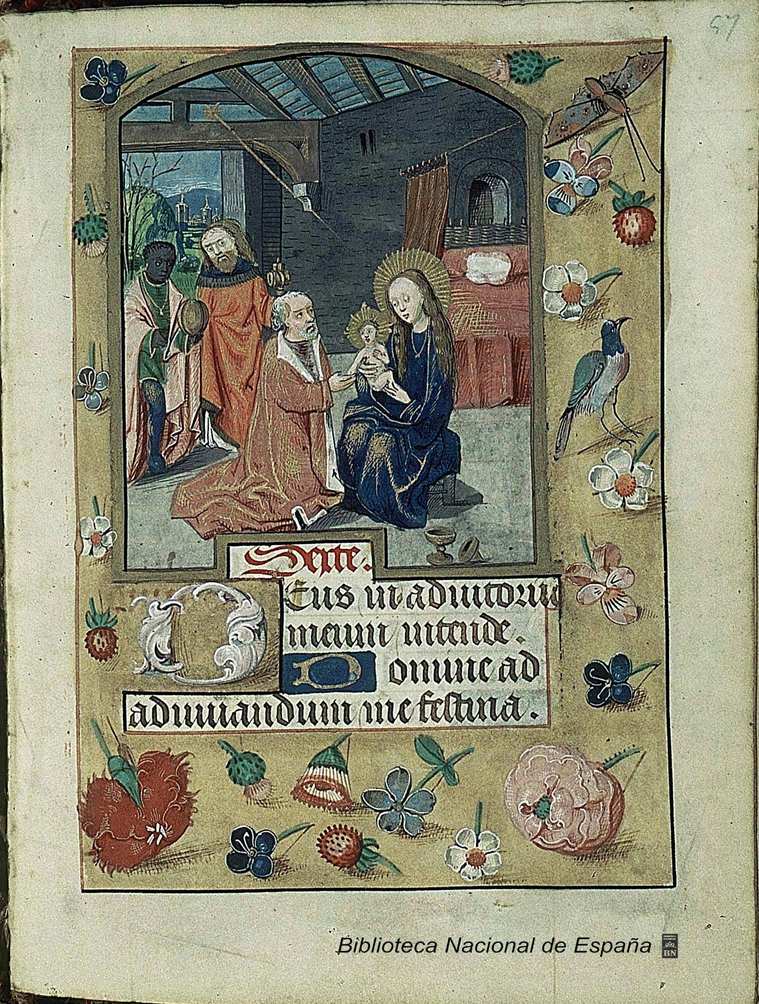 57
Sexte.
Deus in adiutoriu
meum intende.
Domine ad
adiuuandum me festina.
Biblioteca Nacional de España
BN